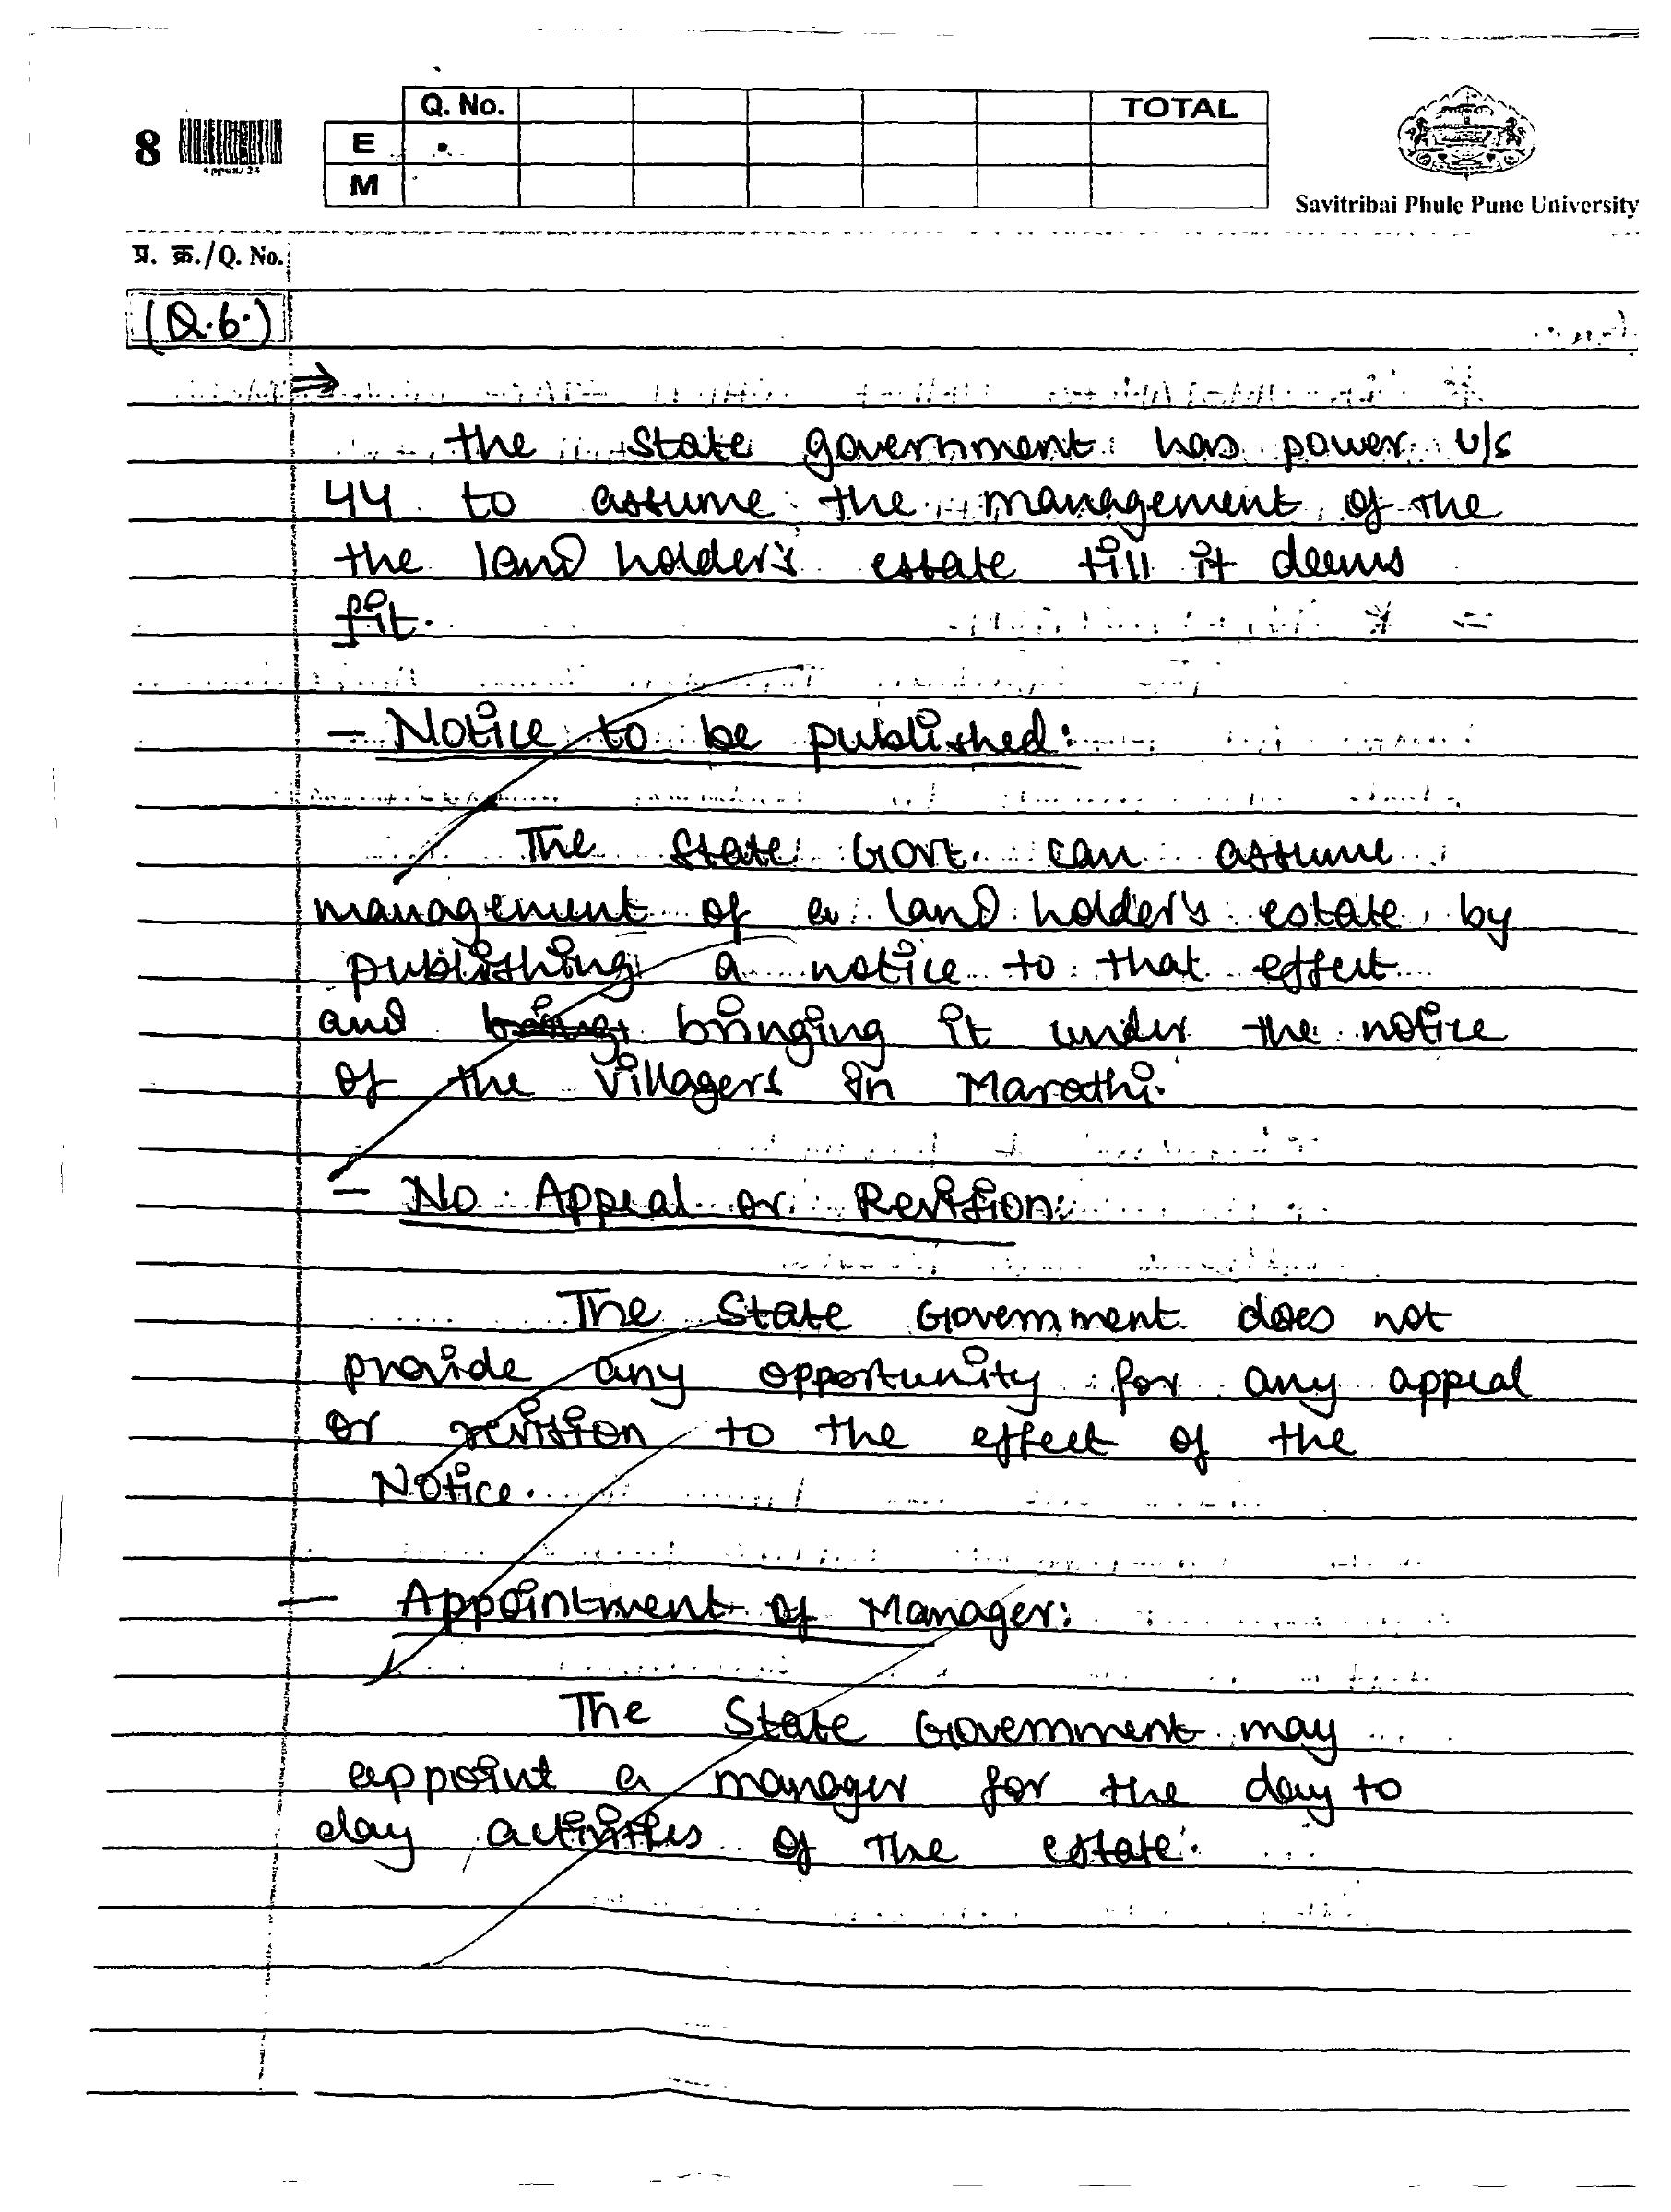 8
Q. No. TOTAL
E
M
Savitribai Phule Pune University
प्र. क्र./Q. No.
(Q.6.)
⇒
the state government has power u/s
44 to assume the management of the
the land holder's estate till it deems
fit.
- Notice to be published:
The State Govt. can assume
management of a land holder's estate by
publishing a notice to that effect
and being bringing it under the notice
of the villagers in Marathi.
- No Appeal or Revision:
The State Government does not
provide any opportunity for any appeal
or revision to the effect of the
Notice.
- Appointment of Manager:
The State Government may
appoint a manager for the day to
day activities of the estate.